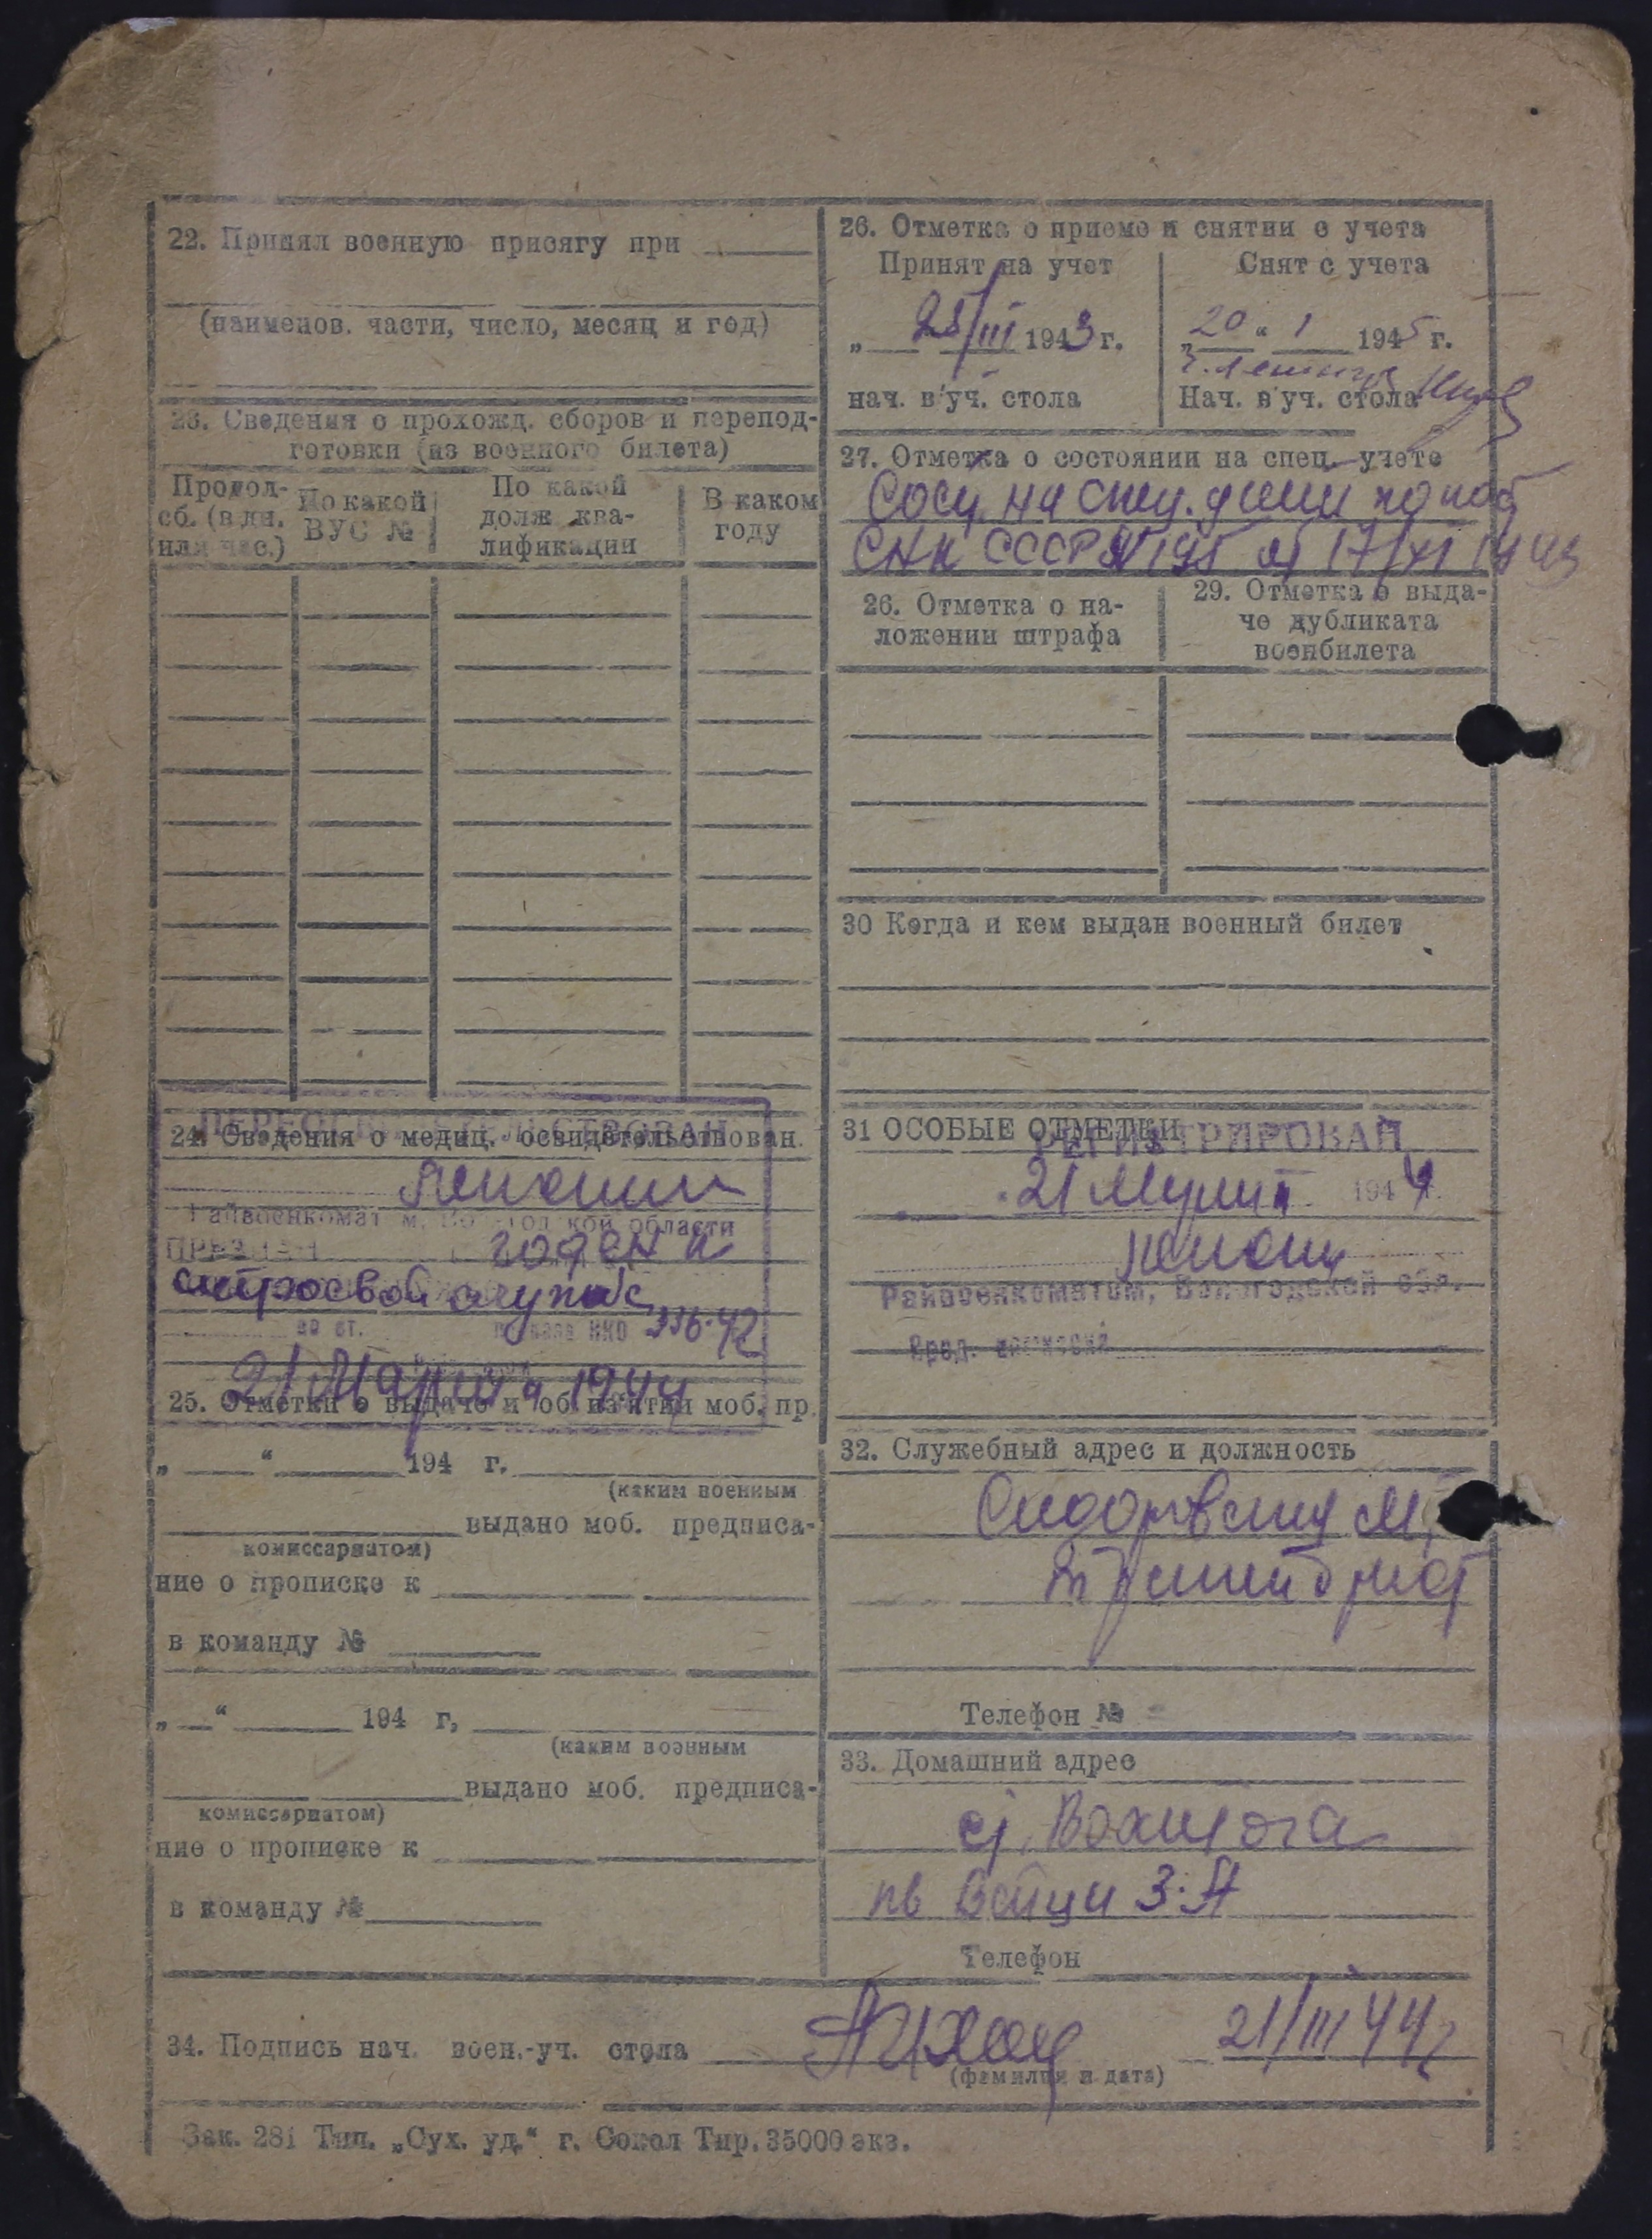 22. Принял военную присягу при
(наименов. части, число, месяц и год)
23. Сведения о прохожд. сборов и перепод-
готовки (из военного билета)
Продол-
сб. (в дн.
или час.)
По какой
ВУС №
По какой
долж ква-
лификации
В каком
году
24. Сведения о медиц. освидетельствован.
Райвоенкомат
области
ПРИЗНАН годен к
строевой службе
НКО 336-42
21 Марта 1944
25. Отметки о выдаче и об из'ятии моб. пр.
„ “ 194 г.
(каким военным
выдано моб. предписа-
комиссариатом)
ние о прописке к
в команду №
„ “ 194 г.
(каким военным
выдано моб. предписа-
комиссариатом)
ние о прописке к
в команду №
26. Отметка о приеме и снятии с учета
Принят на учет
„ 25/III 1943 г.
нач. в/уч. стола
Снят с учета
„20“ 1 1945 г.
Нач. в уч. стола
27. Отметка о состоянии на спец. учете
СНК СССР № 195 от 17/XI 1943
26. Отметка о на-
ложении штрафа
29. Отметка о выда-
че дубликата
военбилета
30 Когда и кем выдан военный билет
31 ОСОБЫЕ ОТМЕТКИ
РЕГИСТРИРОВАН
21 Марта 1944
Райвоенкоматом, Вологодской обл.
32. Служебный адрес и должность
Телефон №
33. Домашний адрес
ст. Вохтога
Телефон
34. Подпись нач. воен.-уч. стола
21/III 44 г
(фамилия и дата)
Зак. 281 Тип. „Сух. уд.“ г. Сокол Тир. 35000 экз.